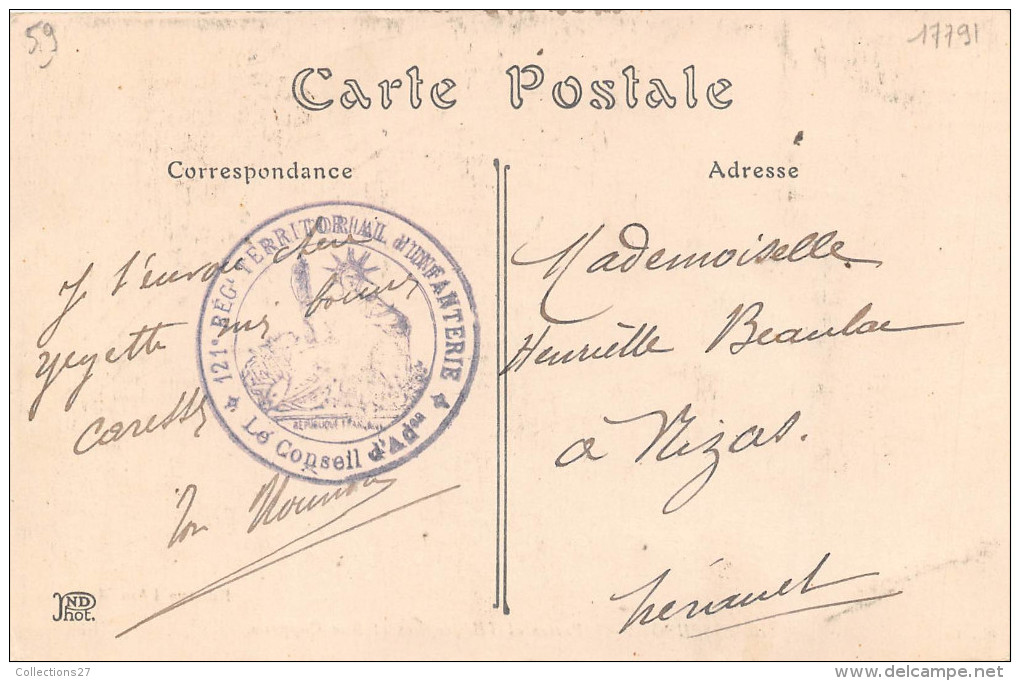 59
17791
Carte Postale
Correspondance
Adresse
121e RÉGt TERRITORIAL d'INFANTERIE
Le Conseil d'Adon
RÉPUBLIQUE FRANÇAISE
Je t'envoie chère
yeyette mes bonnes
caresses
Ton
Mademoiselle
Henriette Beaulac
à Nizas.
Hérault
ND
Phot.
Collections27
www.delcampe.net